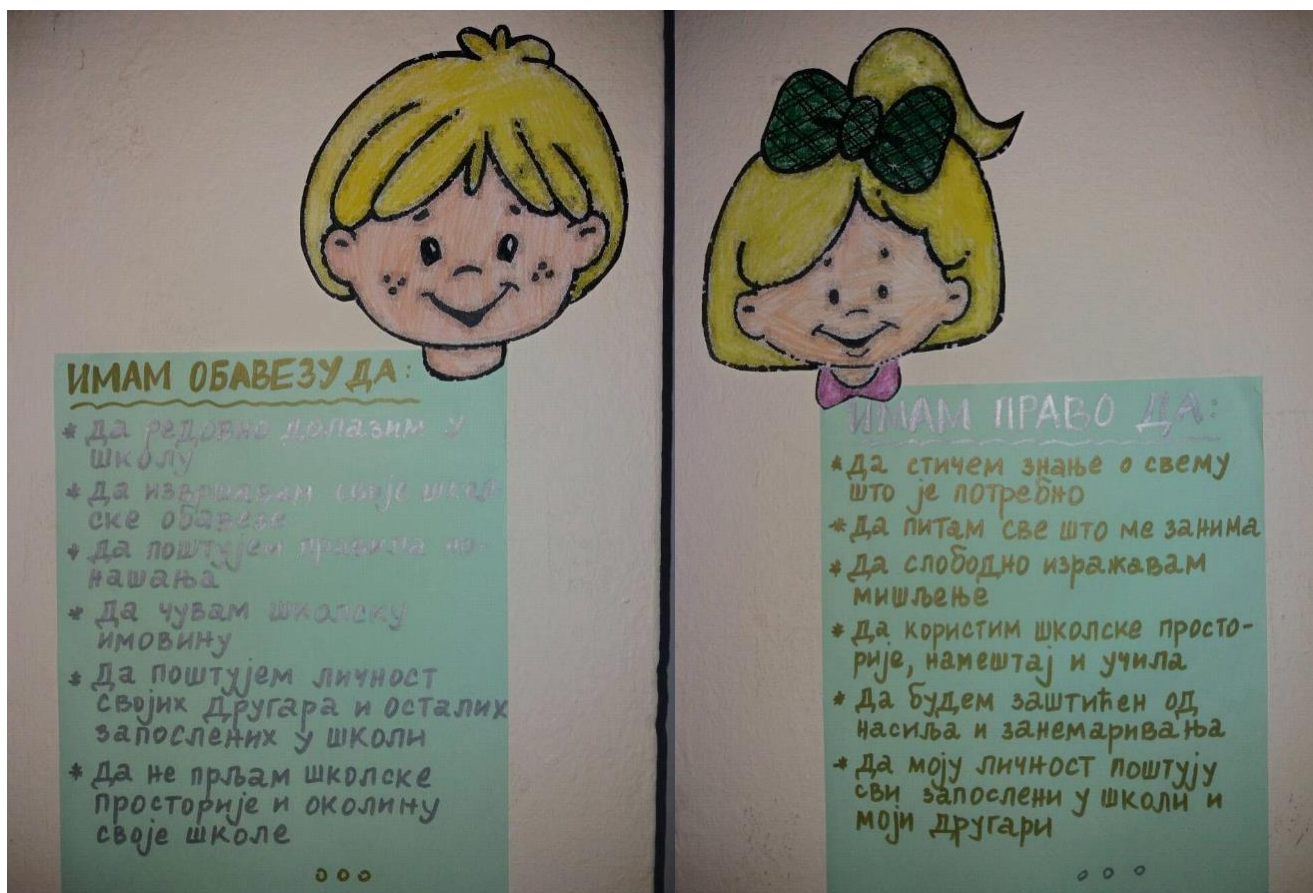 ИМАМ ОБАВЕЗУ ДА:
* Да редовно долазим у
школу
* Да извршавам своје школ-
ске обавезе
* Да поштујем правила по-
нашања
* Да чувам школску
имовину
* Да поштујем личност
својих другара и осталих
запослених у школи
* Да не прљам школске
просторије и околину
своје школе
ООО
ИМАМ ПРАВО ДА:
* Да стичем знање о свему
што је потребно
* Да питам све што ме занима
* Да слободно изражавам
мишљење
* Да користим школске просто-
рије, намештај и учила
* Да будем заштићен од
насиља и занемаривања
* Да моју личност поштују
сви запослени у школи и
моји другари
ООО